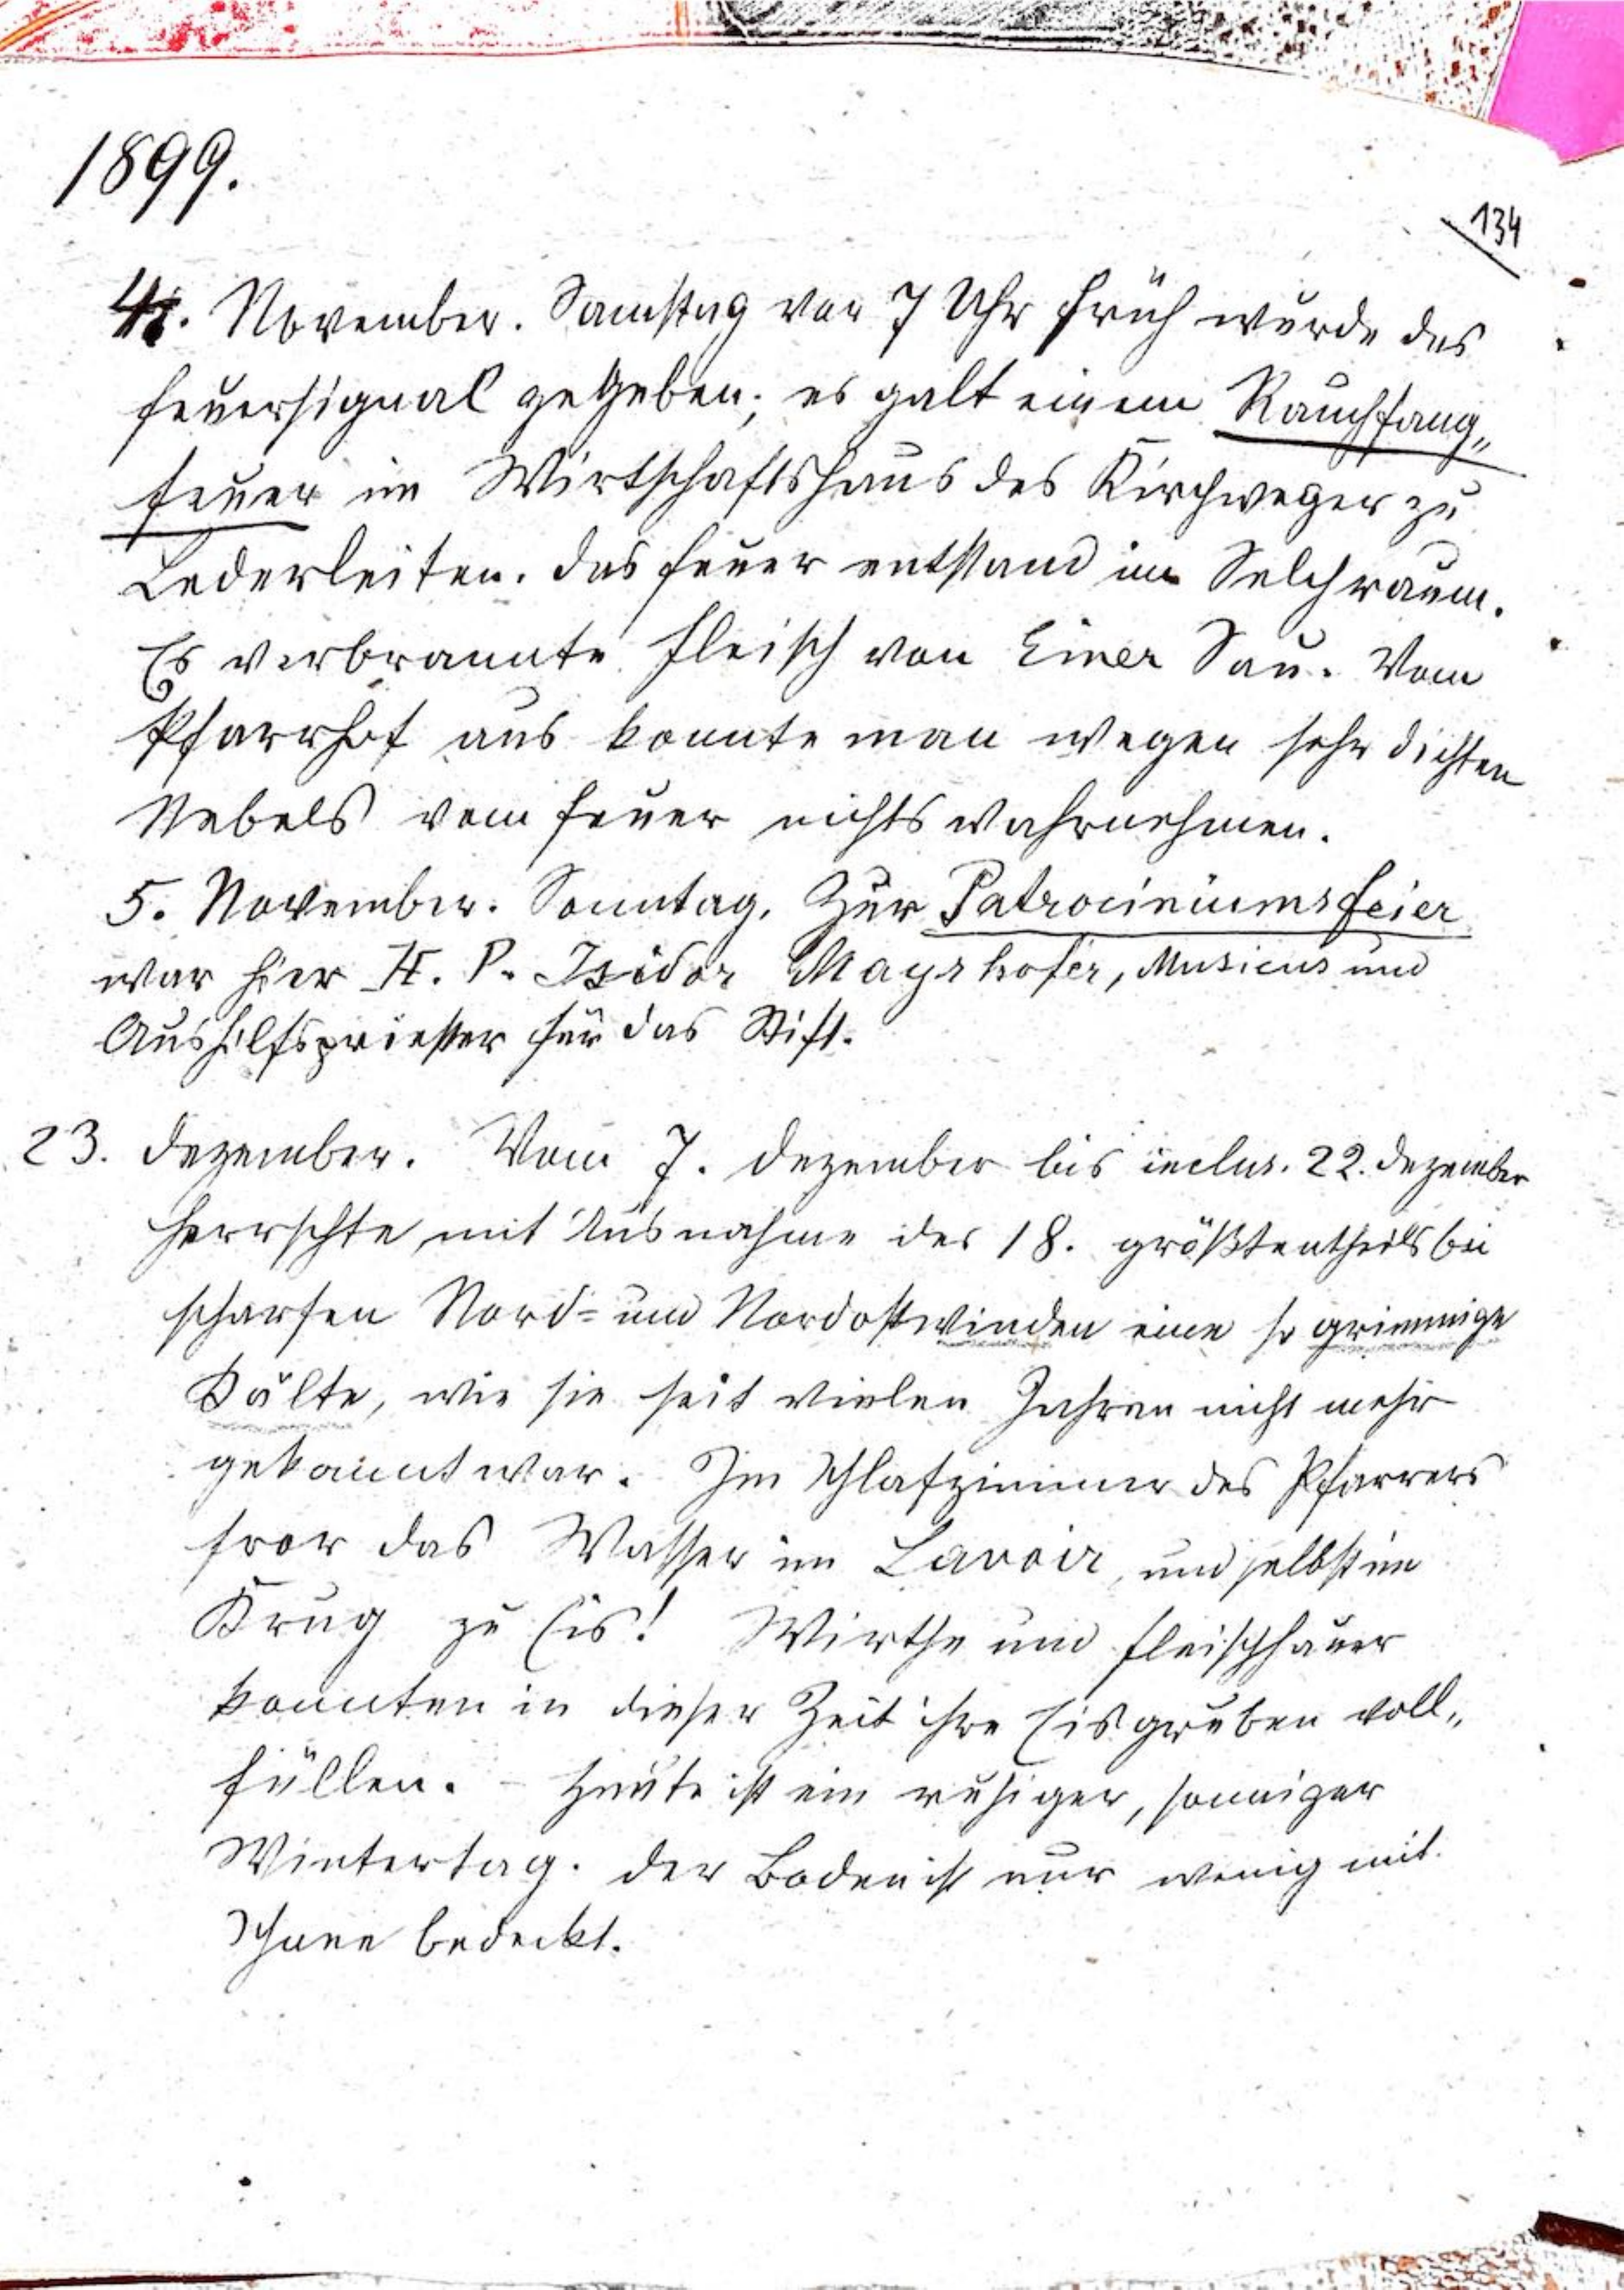 1899.
134
4. November. Samstag vor 7 Uhr früh wurde das
Feuersignal gegeben; es galt einem Rauchfang„
feuer im Wirtschaftshaus des Kirchweger zu
Lederleiten. Das Feuer entstand im Selchraum.
Es verbrannte Fleisch von Einer Sau. Vom
Pfarrhof aus konnte man wegen sehr dichten
Nebels vom Feuer nichts wahrnehmen.
5. November. Sonntag. Zur Patrociniumsfeier
war hier H. P. Isidor Mayrhofer, Musicus und
Aushilfspriester für das Stift.
23. Dezember. Vom 7. Dezember bis inclus. 22. Dezember
herrschte mit Ausnahme des 18. größtentheils bei
scharfen Nord= und Nordostwinden eine so grimmige
Kälte, wie sie seit vielen Jahren nicht mehr
gekannt war. Im Schlafzimmer des Pfarrers
fror das Wasser im Lavoir, und selbst im
Krug zu Eis! Wirthe und Fleischhauer
konnten in dieser Zeit ihre Eisgruben voll„
füllen. – Heute ist ein ruhiger, sonniger
Wintertag. Der Boden ist nur wenig mit
Schnee bedeckt.